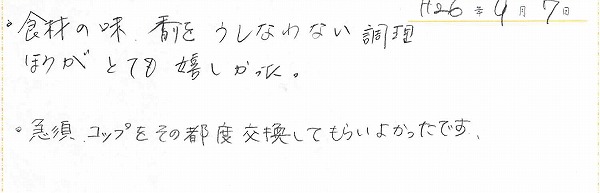 H26年9月7日
・食材の味、香りをうしなわない調理
ほうがとても嬉しかった。
・急須、コップをその都度交換してもらいよかったです。